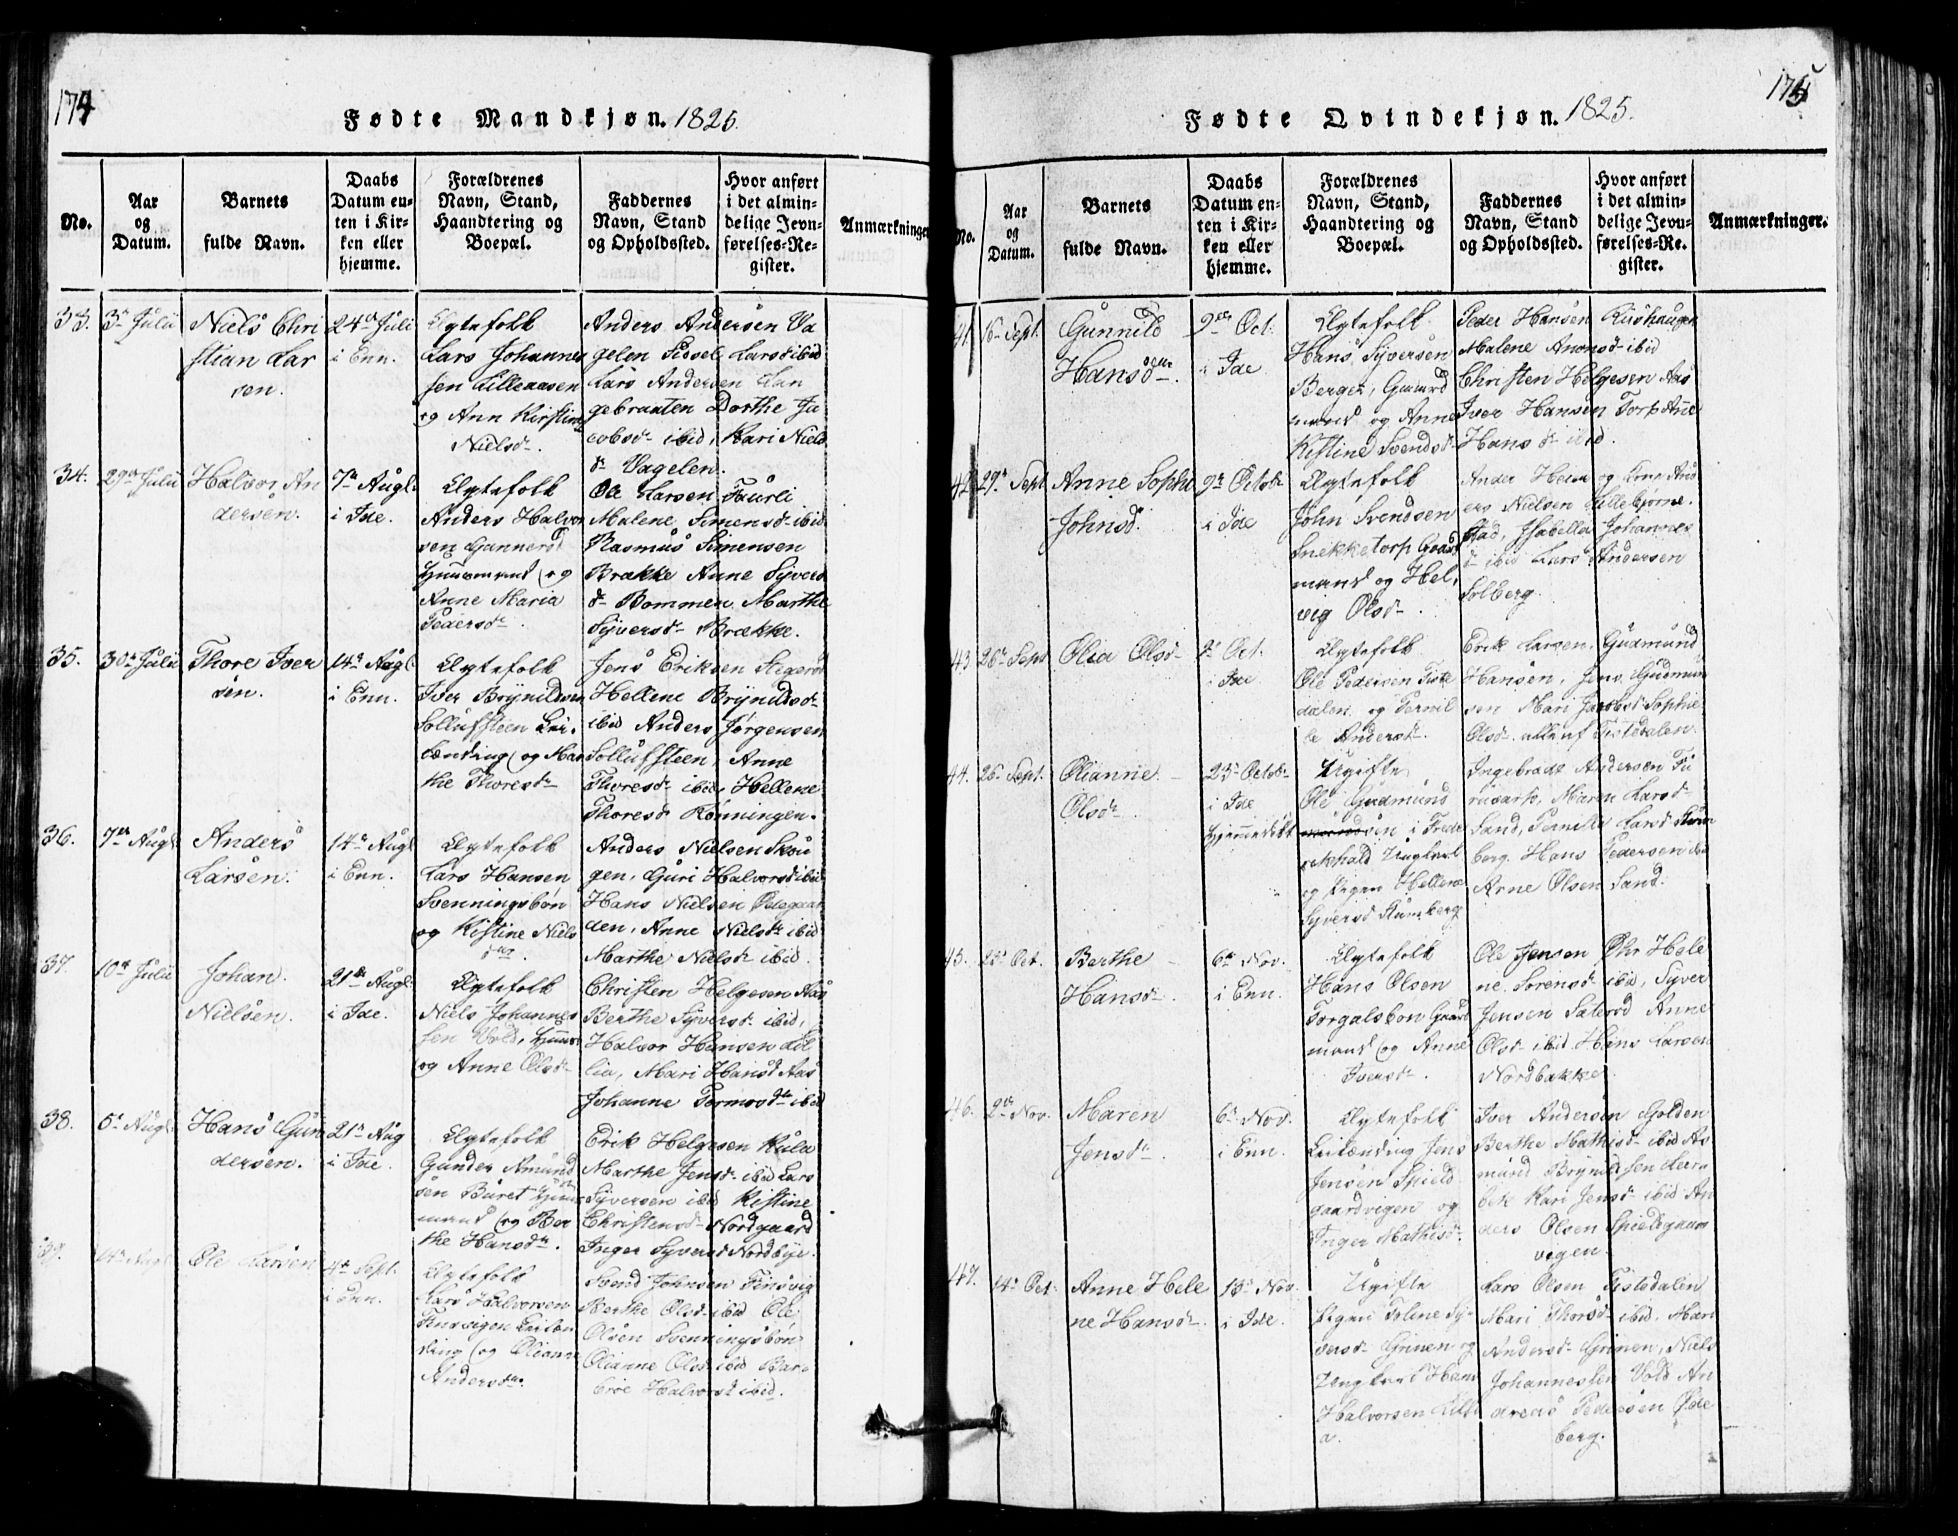 174
Fødte Mandkjøn. 1825.
No.
Aar
og
Datum.
Barnets
fulde Navn.
Daabs
Datum en-
ten i Kir-
ken eller
hjemme.
Forældrenes
Navn, Stand,
Haandtering og
Boepæl.
Faddernes
Navn, Stand
og Opholdssted.
Hvor anført
i det almin-
delige Jevn-
førelses-Re-
gister.
Anmærkninger
33.
3die Julii
Niels Chri
stian Lar
sen.
24de Juli
i Enn.
Ægtefolk
Lars Johannes
sen Lilleaasen
og Ann Kirstine
Nielsd.
Anders Andersen Va
gelen Sissel Larsd ibid
Lars Andersen Lan
gebraaten Dorthe Ja
cobsd ibid, Kari Niels
d Vagelen.
34.
29de Julii
Halvor An
dersen.
7de Augl.
i Ide.
Ægtefolk
Anders Halvor
sen Gannerød
Huusmand og
Anne Maria
Pedersd.
Ole Larsen Taurli
Malene Simensd ibid
Rasmus Simensen
Brække Anne Syvers
d Bommen Marthe
Syversd Brække.
35.
30te Julii
Thore Iver
sen.
14de Augl.
i Enn.
Ægtefolk
Iver Brynildsen
Sollufsteen Lei-
lænding og Mar
the Thoresd
Jens Eriksen Stegerød
Hellene Brynildsd
ibid Anders Jørgensen
Sollufsteen, Anne
Thoresd ibid, Hellene
Thoresd Rønningen.
36.
7de Augl.
Anders
Larsen.
14de Augl
i Enn.
Ægtefolk
Lars Hansen
Svenningsbøn
og Kistine Niels
d.
Anders Nielsen Skou
gen, Guri Halvorsd ibid
Hans Nielsen Ødegaar
den, Anne Nielsd ibid
Marthe Nielsd ibid.
37.
10de Julii
Johan
Nielsen.
21de Augl.
i Ide.
Ægtefolk
Niels Johannes
sen Vold, Huusm
og Anne Olsd
Christen Helgesen Aas
Berthe Syversd ibid,
Halvor Hansen Lil
lia, Mari Hansd Aas
Johanne Tormosd ibid
38.
5te Augl.
Hans Gun
dersen.
21de Aug
i Ide.
Ægtefolk
Gunder Amund
sen Buret Huus
mand og Ber
the Hansd.
Erik Helgesen Kula
Marthe Jensd ibid Lars
Syversen ibid Kistine
Christensd Nordgaard
Inger Syversd Nordbye.
39.
14de Augl
Ole Larsen
4de Sept.
i Enn.
Ægtefolk
Lars Halvorsen
Tinsvigen Leilæn
ding og Olianne
Andersd.
Svend Johnsen Tinsvig
Berthe Olsd ibid Ole
Olsen Svenningsbøn
Olianne Olsd ibid Bar
broe Halvorsd ibid.
175
Fødte Qvindekjøn. 1825.
No.
Aar
og
Datum.
Barnets
fulde Navn.
Daabs
Datum en-
ten i Kir-
ken eller
hjemme.
Forældrenes
Navn, Stand,
Haandtering og
Boepæl.
Faddernes
Navn, Stand
og Opholdssted.
Hvor anført
i det almin-
delige Jevn-
førelses-Re-
gister.
Anmærkninger.
41.
16 Sept.
Gunnild
Hansd.
9de Oct.
i Ide.
Ægtefolk
Hans Syversen
Berger, Gaard
mand og Anne
Kistine Svendsd
Peder Hansen Kushaugen
Malene Anonsd ibid
Christen Helgesen Aas
Iver Hansen Torp Anne
Hansd ibid.
42.
29de Sept
Anne Sophi
Johnsd.
9de Octob
i Ide
Ægtefolk
John Svendsen
Snekketorp Gaard
mand og Hel,
vig Olsd.
Ander
ers Nielsen Lillebjørne.
stad, Isabella Johannes
d ibid Lars Andersen
Solberg.
43.
26de Sept
Olia Olsd
9de Oct.
i Ide.
Ægtefolk
Ole Pedersen Tiste
dalen og Pernil
le Andersd.
Erik Larsen, Gudmund
Hansen, Jens Gudmun
sen Mari Jacobsd Sophie
Olsd alle af Tistedalen.
44.
26 Sept.
Olianne
Olsd.
23de Octob
i Ide
hjemmedøbt
Ugifte
Ole Gudmund
sen i Frede
rikshald Ungkarl
og Pigen Hellene
Syversd Stumberg
Ingebradt Andersen Fu
rusark, Maren Larsd
Sand, Pernille Larsd Stum
berg. Hans Pedersen ibid
Arne Olsen Sand.
45.
25de Oct.
Berthe
Hansd.
6te Nov.
i Enn.
Ægtefolk
Hans Olsen
Torgalsbøn Gaard
mand og Anne
Iversd.
Ole Jensen Øhr Hele
ne Sørensd ibid, Syver
Jensen Saterød Anne
Olsd ibid. Hans Larsen
Nordbakke.
46.
2de Nov.
Maren
Jensd.
6te Nov.
i Enn.
Ægtefolk
Leilænding Jens
Jensen Spield
gaardvigen og
Inger Mathisd.
Iver Andersen Golden
Berthe Mathisd ibid As
mund Brynildsen Leer
bek Kari Jensd ibid An
ders Olsen Spieldgaard
vigen
47.
14de Oct.
Anne Hele
ne Hansd.
13de Nov.
i Ide.
Ugifte
Pigen Toline Sy
versd Grinen og
Ungkarl Hans
Halvorsen Lille
a.
Lars Olsen Tistedalen
Mari Thorsd ibid. Mari
Andersd Grinen, Niels
Johannessen Vold An
dreas Pedersen Ide
berg.